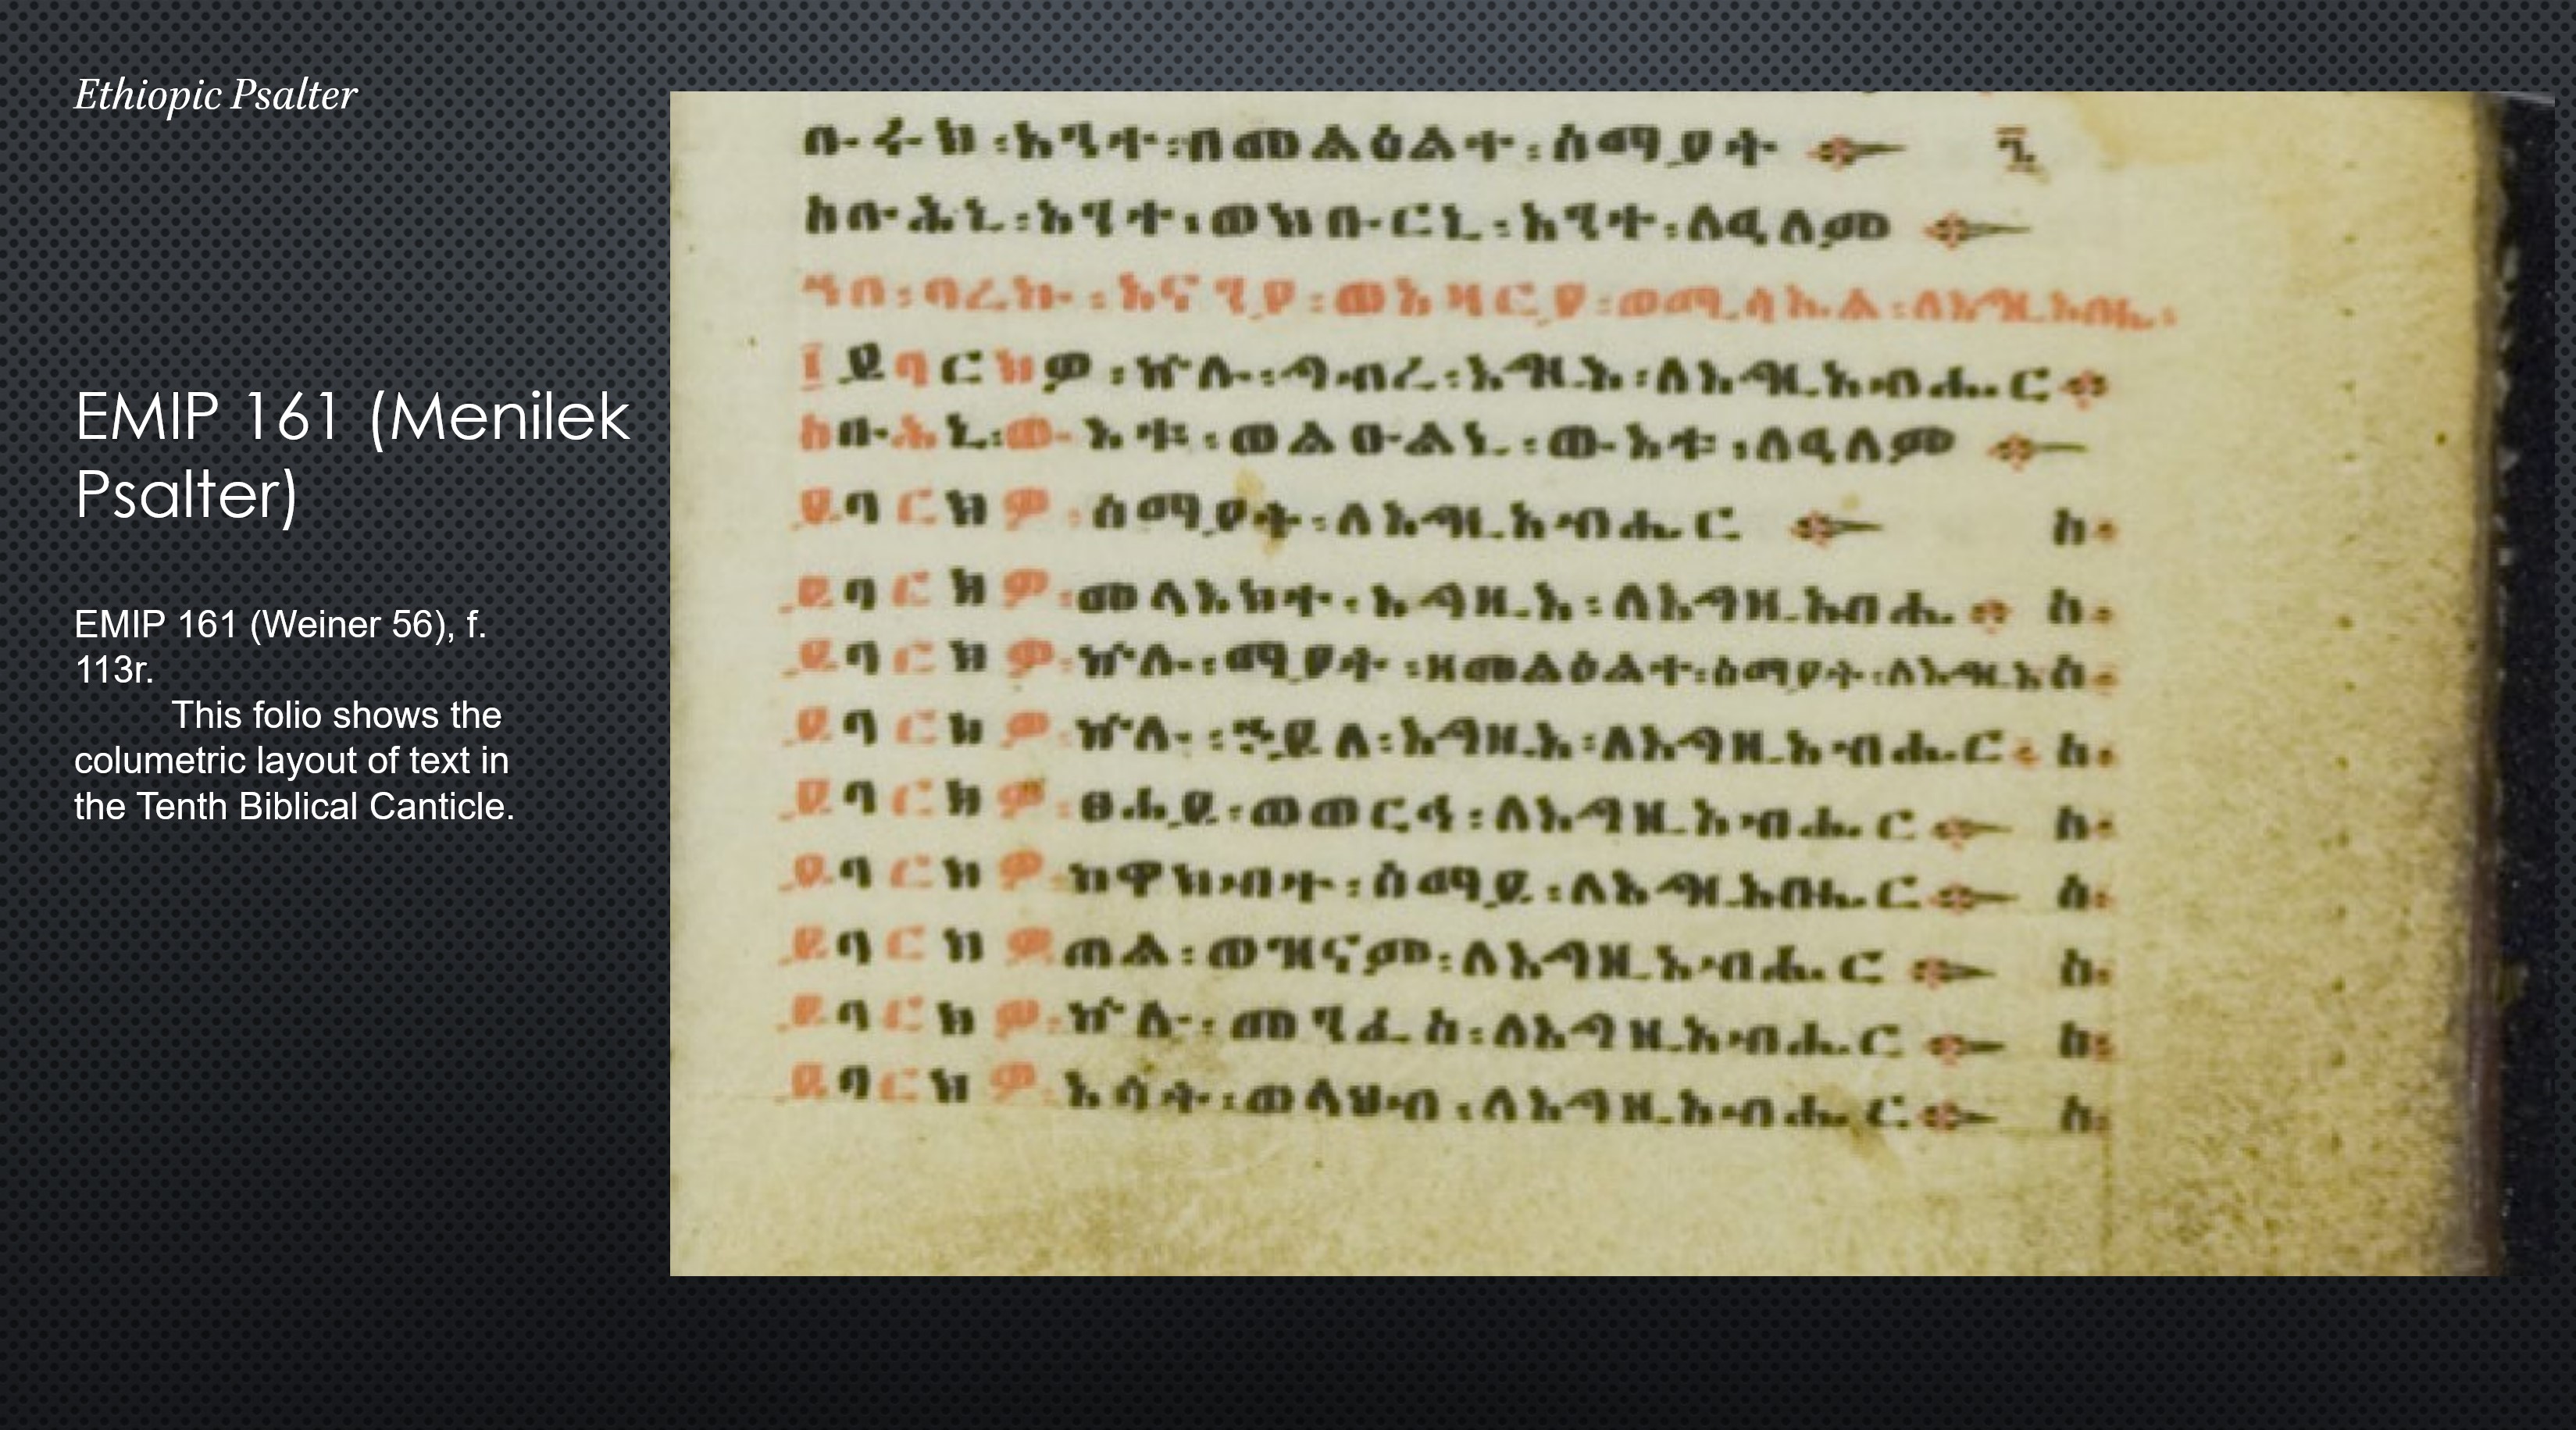 Ethiopic Psalter
EMIP 161 (Menilek
Psalter)
EMIP 161 (Weiner 56), f.
113r.
This folio shows the
columetric layout of text in
the Tenth Biblical Canticle.
ቡሩክ፡አንተ፡በመልዕልተ፡ሰማያት
ስቡሕኒ፡አንተ፡ወክቡርኒ፡አንተ፡ለዓለም
ዘበ፡ባረኩ፡አናንያ፡ወአዛርያ፡ወሚሳኤል፡ለእግዚአብሔ፡
፲ ይባርክዎ፡ኵሉ፡ግብረ፡እግዚእ፡ለእግዚአብሔር
ስቡሕኒ፡ውእቱ፡ወልዑልኒ፡ውእቱ፡ለዓለም
ይባርክዎ፡ሰማያት፡ለእግዚአብሔር ስ፡
ይባርክዎ፡መላእክተ፡እግዚእ፡ለእግዚአብሔ ስ፡
ይባርክዎ፡ኵሉ፡ማያት፡ዘመልዕልተ፡ሰማያት፡ለእግዚአ ስ፡
ይባርክዎ፡ኵሉ፡ኃይለ፡እግዚእ፡ለእግዚአብሔር ስ፡
ይባርክዎ፡ፀሐይ፡ወወርኅ፡ለእግዚአብሔር ስ፡
ይባርክዎ፡ከዋክብተ፡ሰማይ፡ለእግዚአብሔር ስ፡
ይባርክዎ ጠል፡ወዝናም፡ለእግዚአብሔር ስ፡
ይባርክዎ፡ኵሉ፡መንፈስ፡ለእግዚአብሔር ስ፡
ይባርክዎ፡እሳት፡ወላህብ፡ለእግዚአብሔር ስ፡